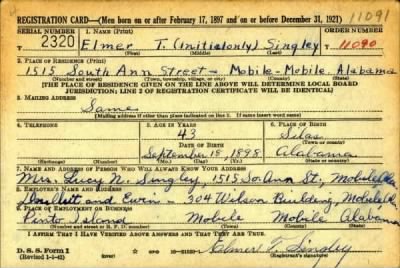 11091
REGISTRATION CARD—(Men born on or after February 17, 1897 and on or before December 31, 1921)
SERIAL NUMBER 1. NAME (Print) ORDER NUMBER
2320 Elmer T. (initial only) Singley 11090
(First) (Middle) (Last)
2. PLACE OF RESIDENCE (Print)
1515 South Ann Street — Mobile - Mobile, Alabama
(Number and street) (Town, township, village, or city) (County) (State)
[THE PLACE OF RESIDENCE GIVEN ON THE LINE ABOVE WILL DETERMINE LOCAL BOARD
JURISDICTION; LINE 2 OF REGISTRATION CERTIFICATE WILL BE IDENTICAL]
3. MAILING ADDRESS
Same
[Mailing address if other than place indicated on line 2. If same insert word same]
4. TELEPHONE 5. AGE IN YEARS 6. PLACE OF BIRTH
43 Silas
DATE OF BIRTH (Town or county)
September 15, 1898 Alabama
(Exchange) (Number) (Mo.) (Day) (Yr.) (State or country)
7. NAME AND ADDRESS OF PERSON WHO WILL ALWAYS KNOW YOUR ADDRESS
Mrs. Lucy N. Singley, 1515 So. Ann St., Mobile, Ala
8. EMPLOYER'S NAME AND ADDRESS
and Ewin — 304 Wilson Building, Mobile, Ala
9. PLACE OF EMPLOYMENT OR BUSINESS
Pinto Island Mobile Mobile Alabama
(Number and street or R. F. D. number) (Town) (County) (State)
I AFFIRM THAT I HAVE VERIFIED ABOVE ANSWERS AND THAT THEY ARE TRUE.
D. S. S. Form 1
(Revised 1-1-42) Elmer T. Singley
(Registrant's signature)